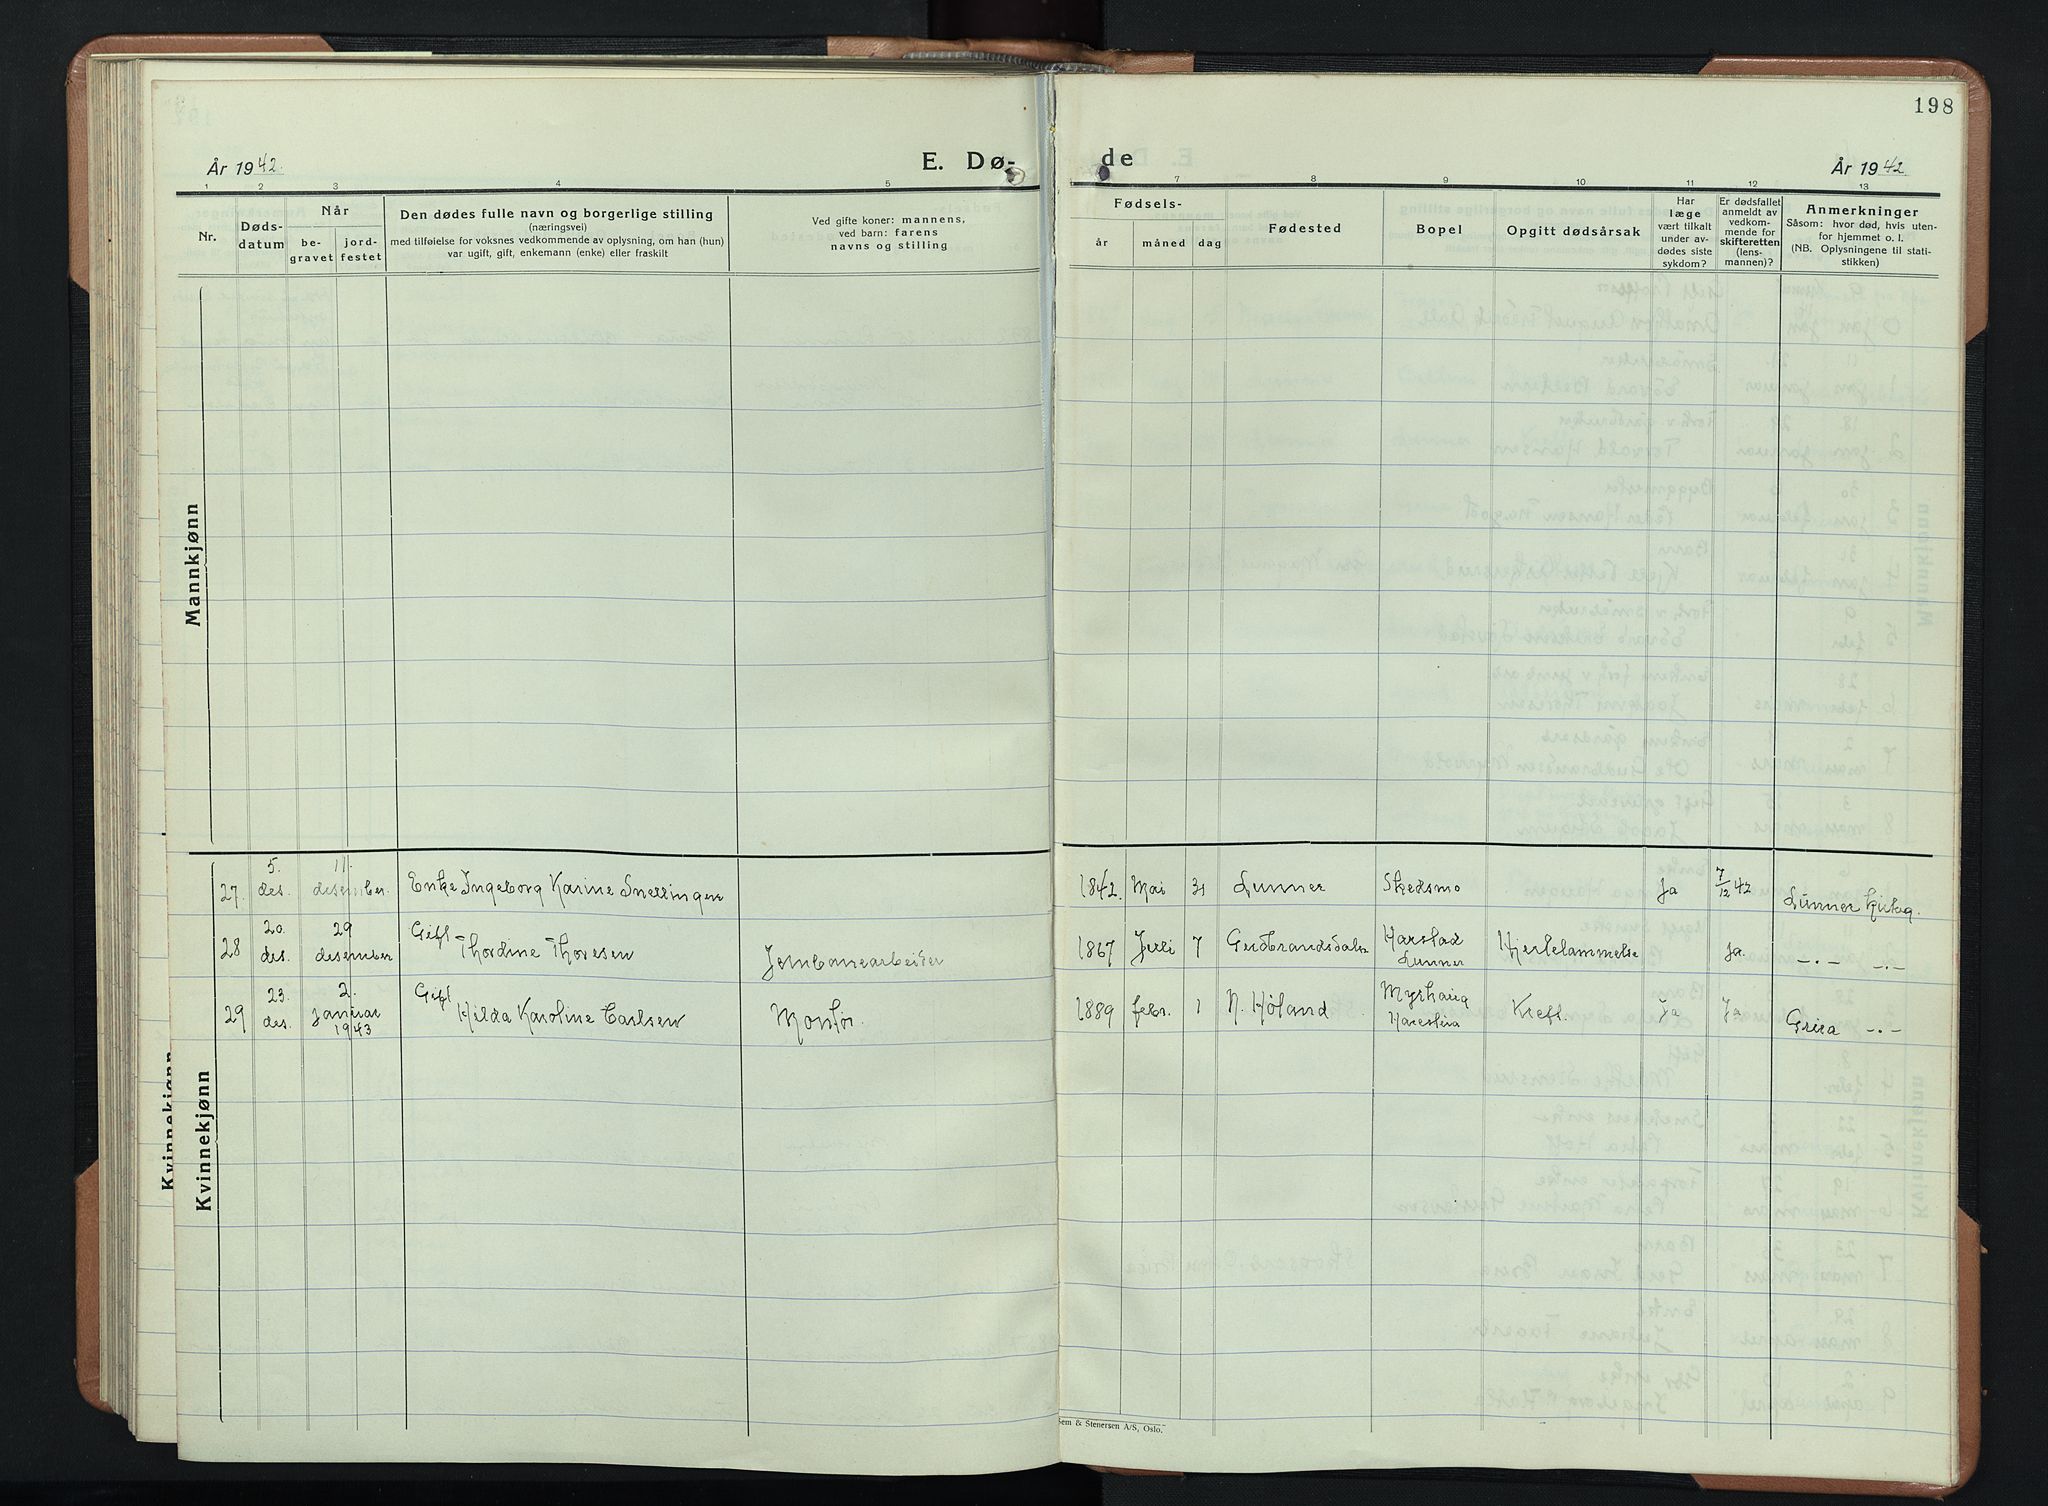 198
År 1942.
E. Dø-
de
År 1942
1 2 3 4 5 7 8 9 10 11 12 13
Nr.
Døds-
datum
Når
be-
gravet
jord-
festet
Den dødes fulle navn og borgerlige stilling
(næringsvei)
med tilføielse for voksnes vedkommende av oplysning, om han (hun)
var ugift, gift, enkemann (enke) eller fraskilt
Ved gifte koner: mannens,
ved barn: farens
navns og stilling
Fødsels-
år
måned
dag
Fødested
Bopel
Opgitt dødsårsak
Har
læge
vært tilkalt
under av-
dødes siste
sykdom?
Er dødsfallet
anmeldt av
vedkom-
mende for
skifteretten
(lens-
mannen)?
Anmerkninger
Såsom: hvor død, hvis uten-
for hjemmet o. l.
(NB. Oplysningene til stati-
stikken)
Mannkjønn
Kvinnekjønn
Kvinnekjønn
27. 5. des. 11. desember. Enke Ingeborg Karine Snellingen 1842. Mai 31 Lunner Skedsmo Ja 7/12 42 Lunner Kirkeg.
28 20. des. 29 desember Gift Thordine Thoresen Jernbanearbeider 1867 Juli 7 Gudbrandsdalen Harstad Lunner Hjertelammelse Ja. —.— —.—
29 23. des. 2. januar 1943 Gift Hilda Karoline Carlsen Montør. 1889 febr. 1 N. Høland Myrhaug Harestua Kreft. Ja Ja Grua —.—
Sem & Stenersen A/S, Oslo.